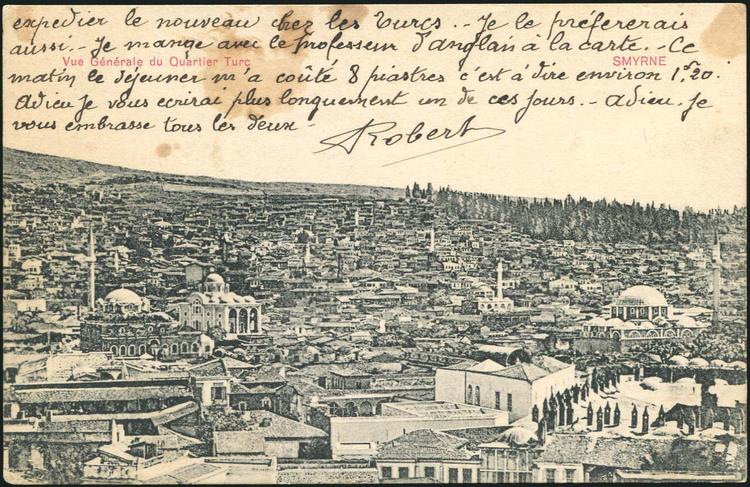 expedier le nouveau chez les Turcs. - Je le préfererais
aussi. - Je mange avec le professeur d'anglais à la carte. - Ce
Vue Générale du Quartier Turc
SMYRNE
matin le déjeuner m'a coûté 8 piastres c'est à dire environ 1f20.
Adieu je vous ecrirai plus longuement un de ces jours. - Adieu. Je
vous embrasse tous les deux -
Robert